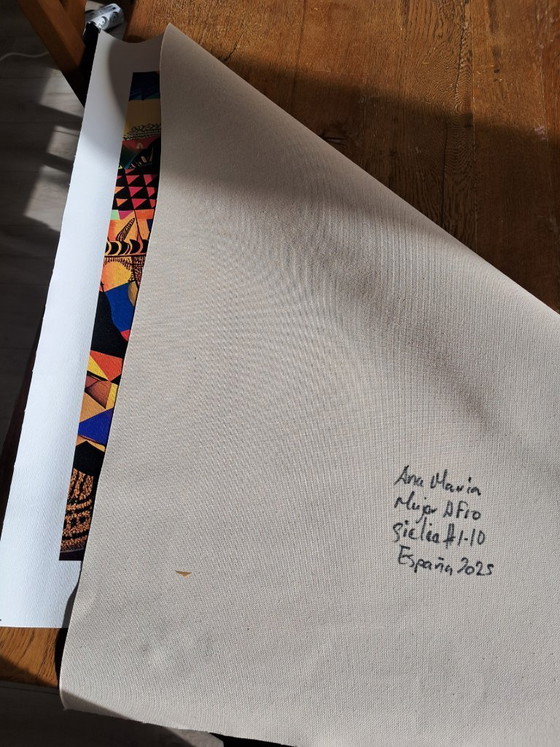 Ana Maria
Mujer Afro
Giclea #1-10
España 2025